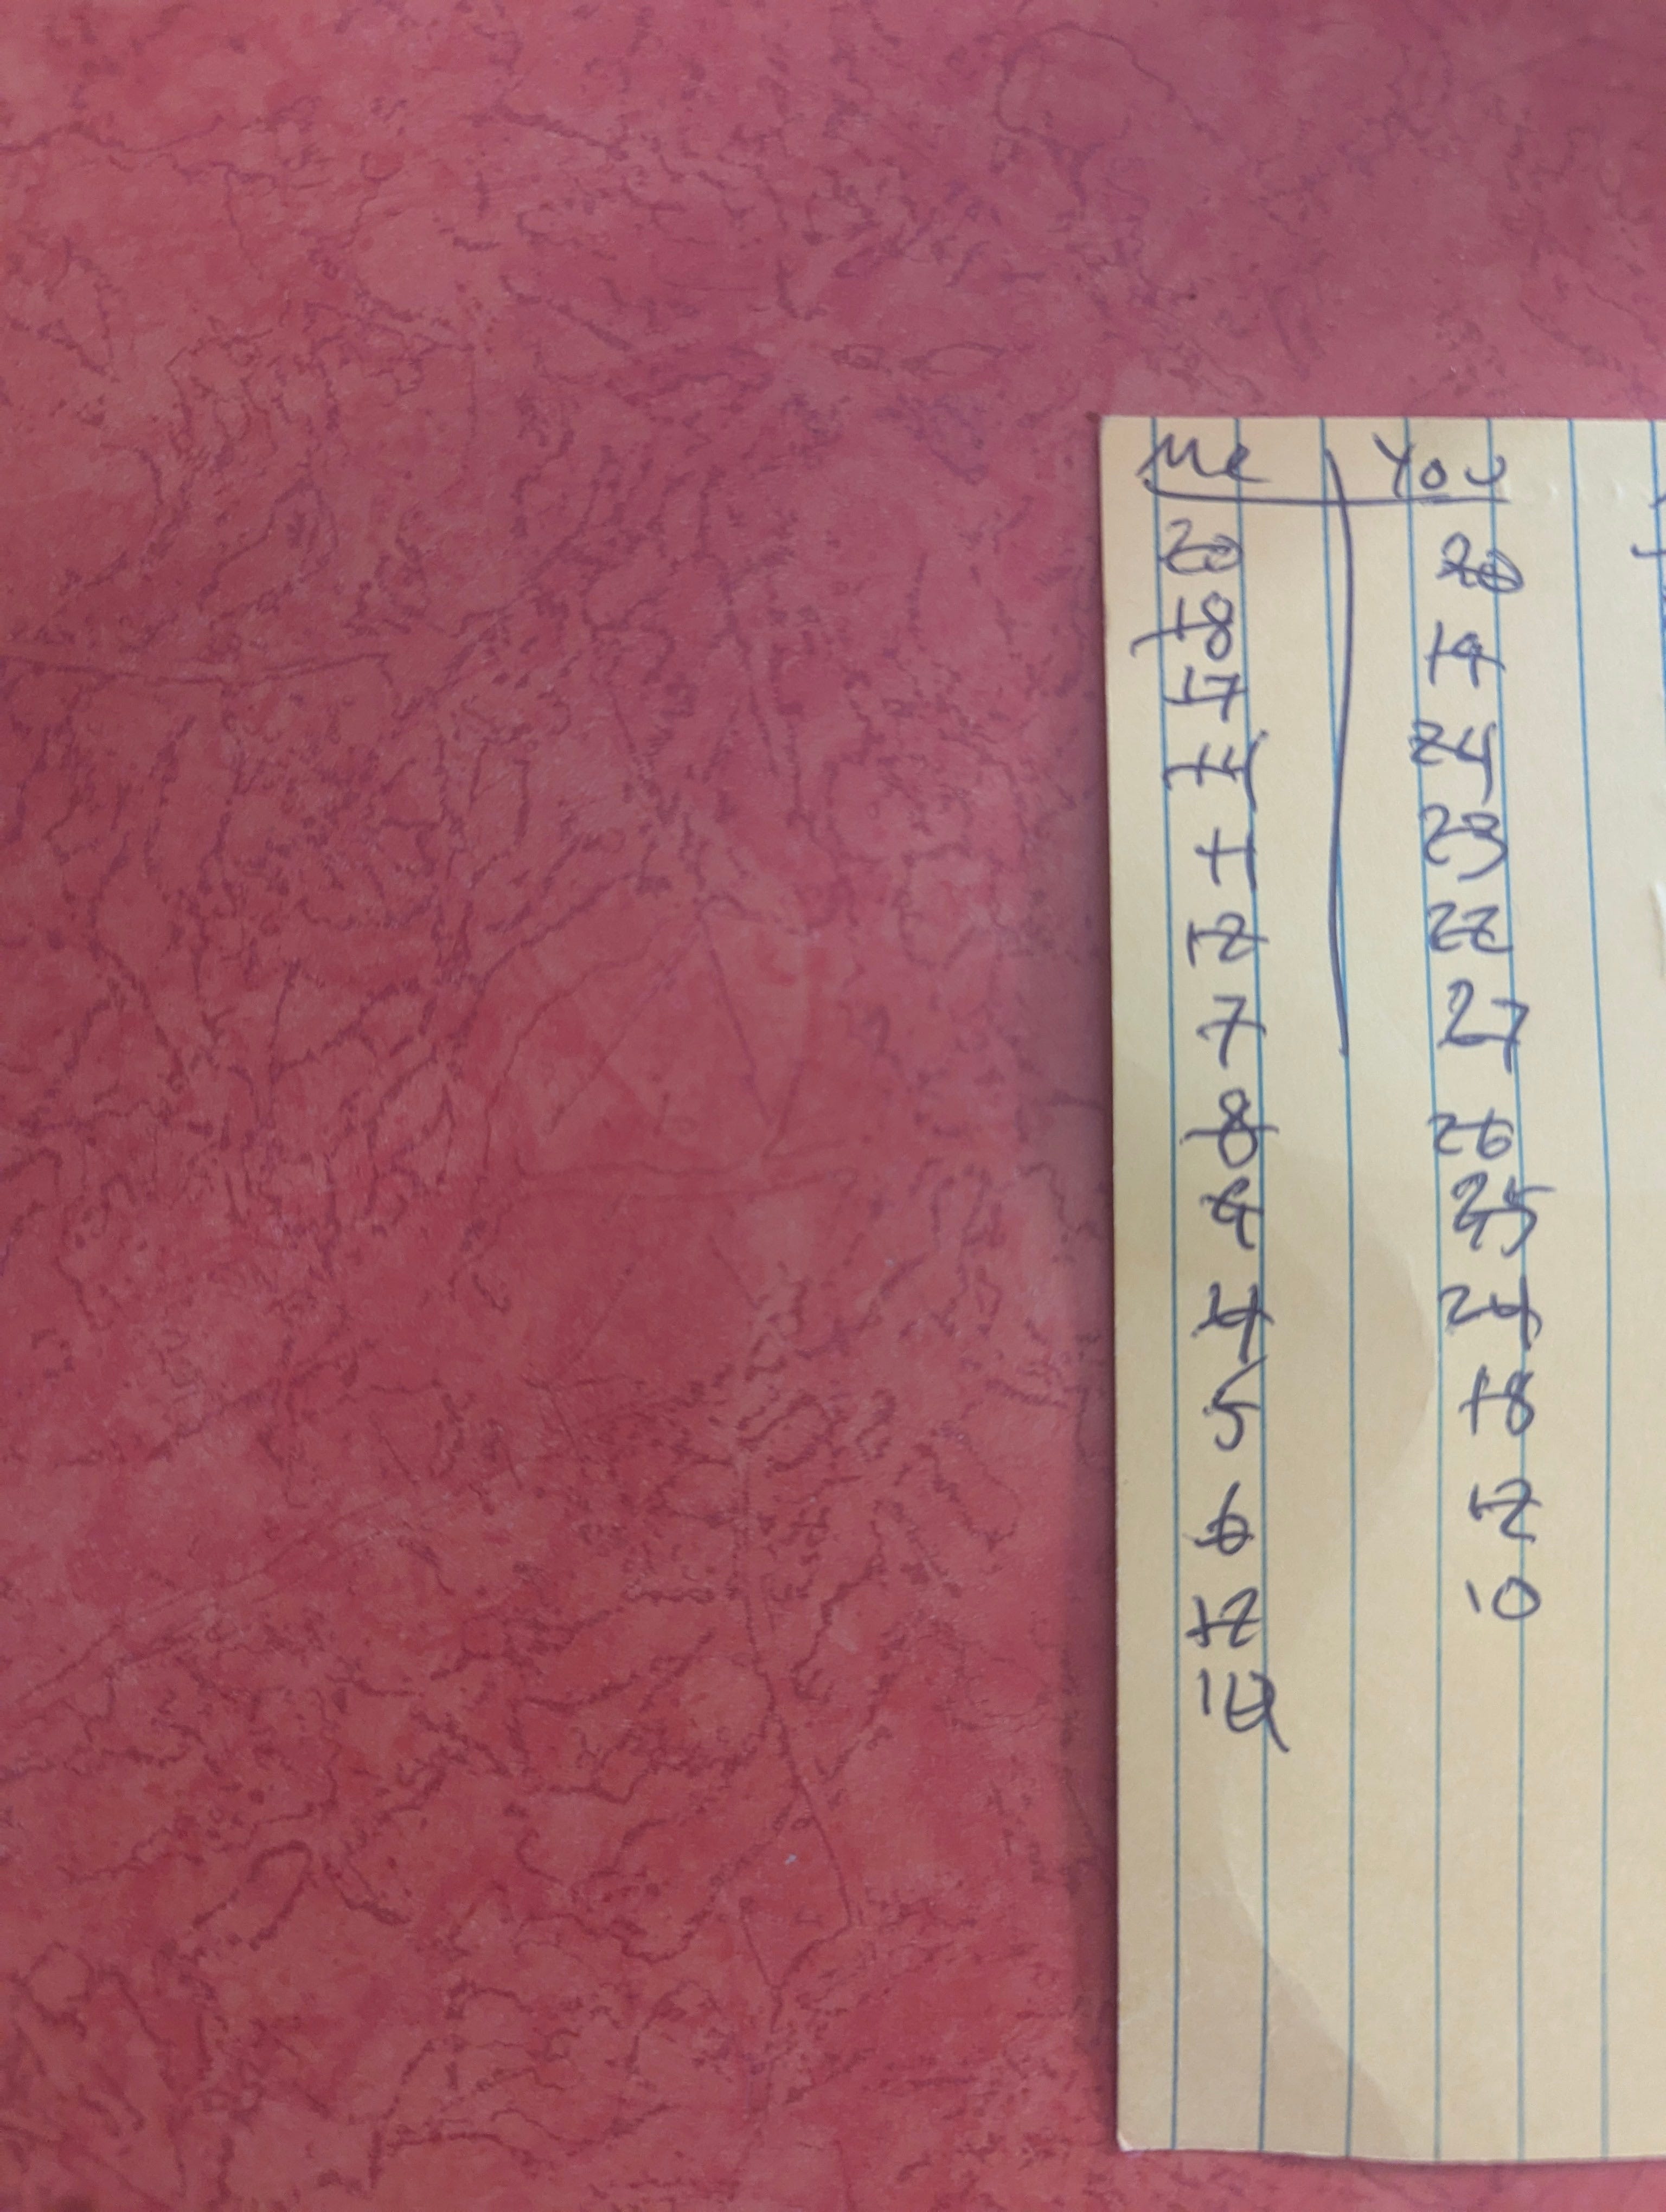 Me You
20 20
18 19
17 24
7 23
1 22
12 27
7 26
8 25
24
4 18
5 12
6 10
12
10